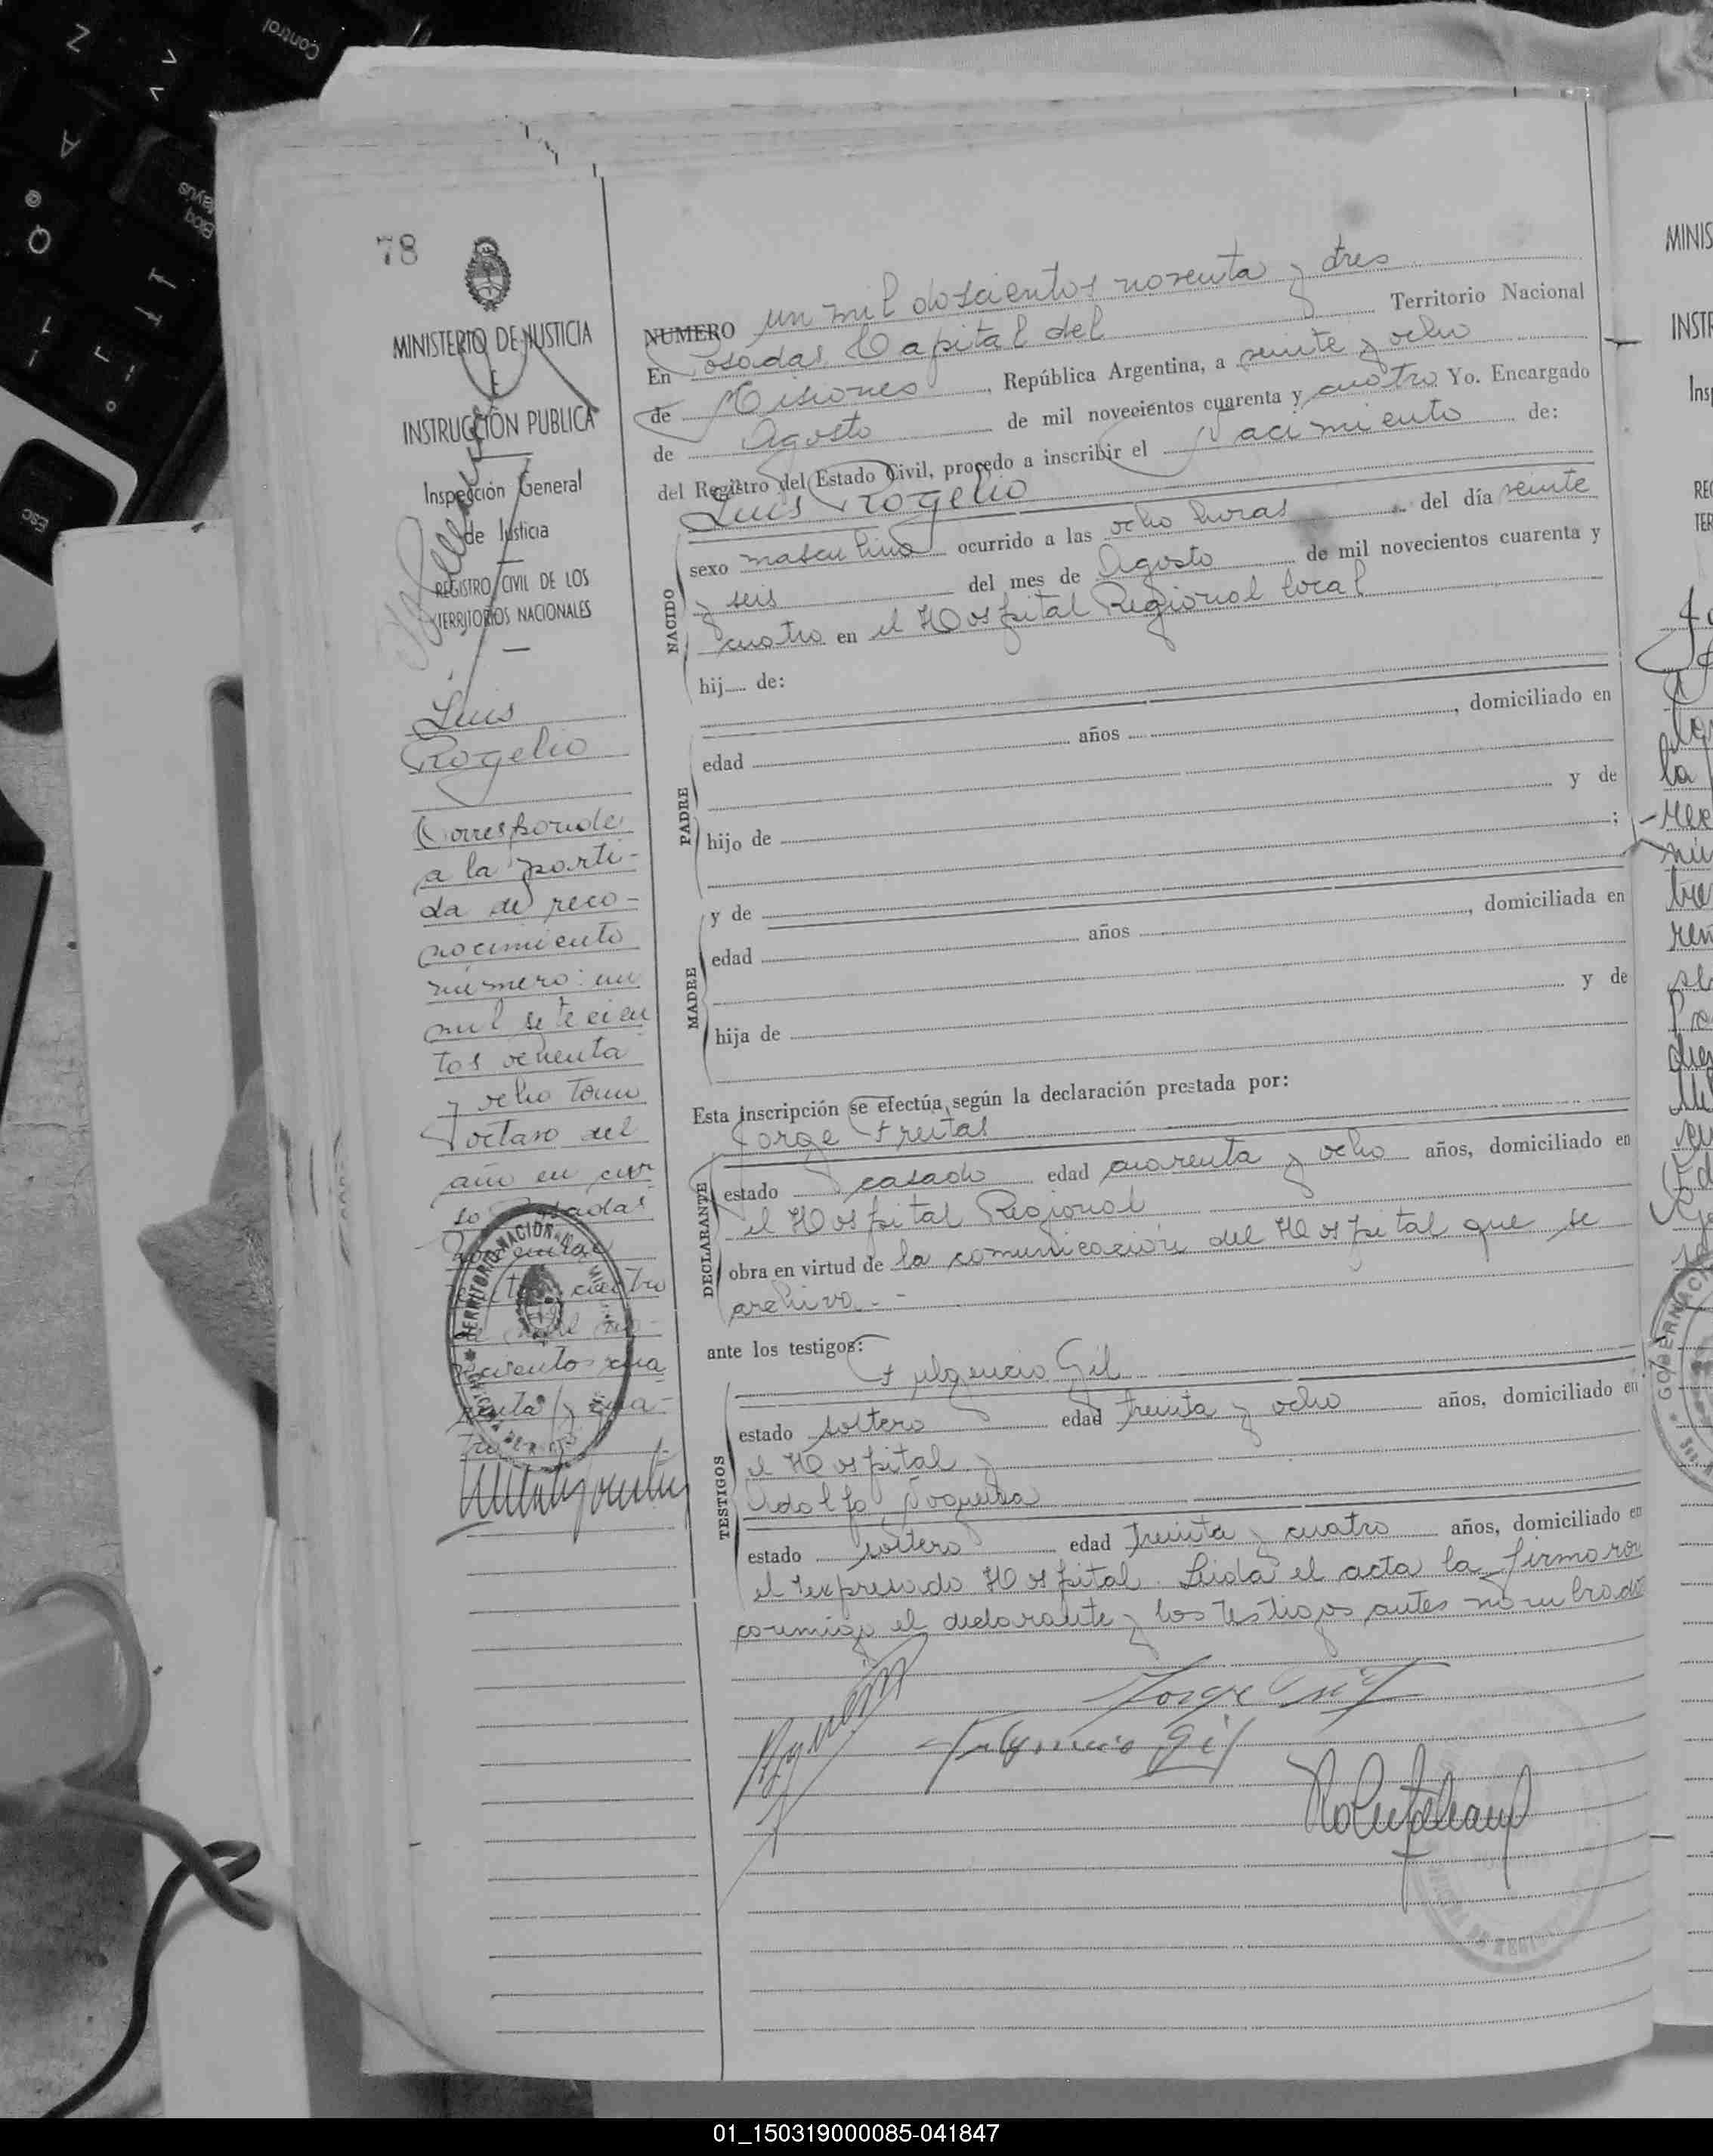 78
MINISTERIO DE JUSTICIA
E
INSTRUCCIÓN PUBLICA
Inspección General
de Justicia
REGISTRO CIVIL DE LOS
TERRITORIOS NACIONALES
Luis
Rogelio
Corresponde
a la parti-
da de reco-
nocimiento
número: un
mil setecien
tos ochenta
y ocho tomo
octavo del
año en cur
so Posadas
cuatro
de mil no-
vecientos cua
renta y cua-
tro
NUMERO un mil doscientos noventa y tres
En Posadas Capital del Territorio Nacional
de Misiones, República Argentina, a veinte y ocho
de Agosto de mil novecientos cuarenta y cuatro Yo. Encargado
del Registro del Estado Civil, procedo a inscribir el Nacimiento de:
Luis Rogelio
NACIDO
sexo masculino ocurrido a las ocho horas del día veinte
y seis del mes de Agosto de mil novecientos cuarenta y
cuatro en el Hospital Regional local
hij de:
PADRE
edad años , domiciliado en
hijo de y de
;
MADRE
y de
edad años , domiciliada en
hija de y de
Esta inscripción se efectúa según la declaración prestada por:
Jorge Freitas
DECLARANTE
estado casado edad cuarenta y ocho años, domiciliado en
el Hospital Regional
obra en virtud de la comunicación del Hospital que se
archiva.-
ante los testigos:
Fulgencio Gil
TESTIGOS
estado soltero edad treinta y ocho años, domiciliado en
el Hospital y
Adolfo Noguera
estado soltero edad treinta y cuatro años, domiciliado en
el expresado Hospital. Leida el acta la firmaron
conmigo el declarante y los testigos antes nombrados
Fulgencio Gil
MINIS
INSTR
Ins
REG
TER
01_150319000085-041847